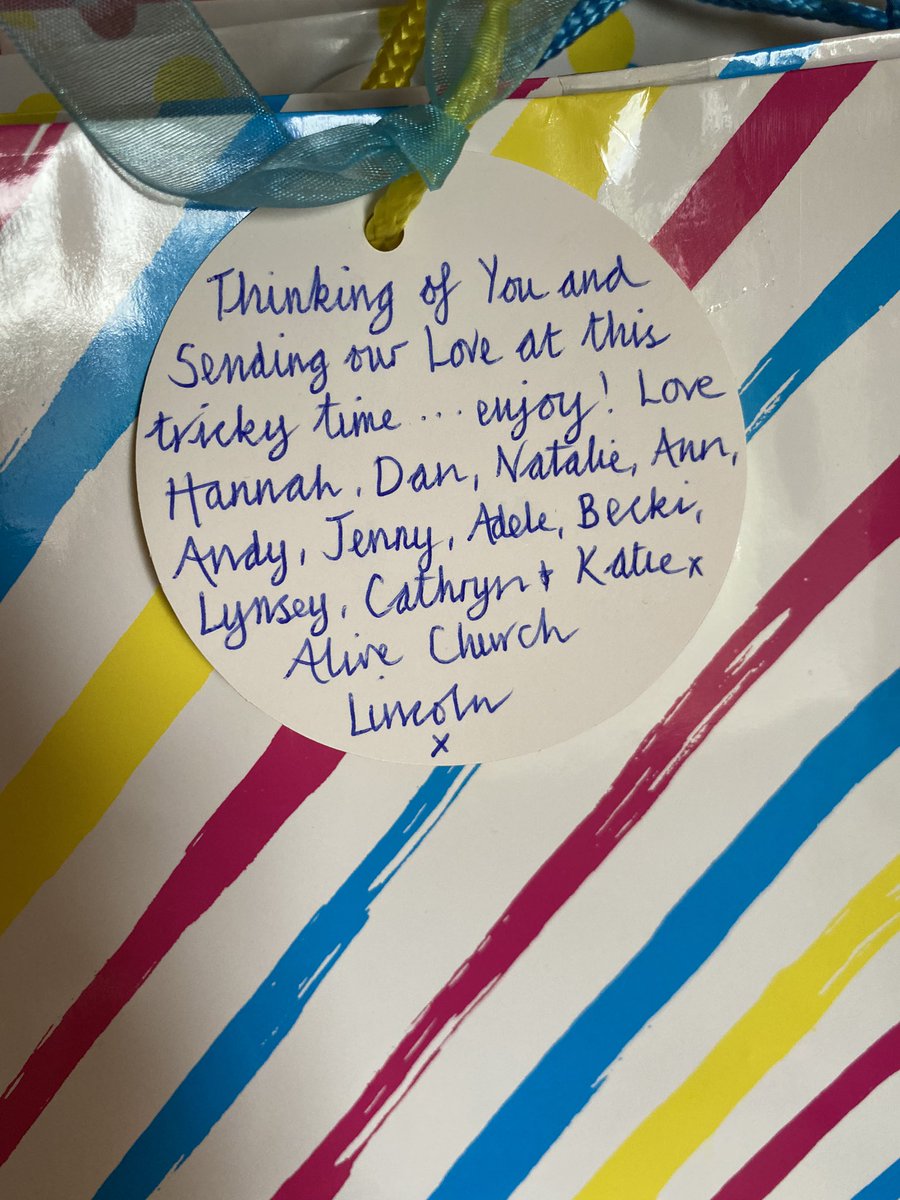 Thinking of You and
Sending our Love at this
tricky time ... enjoy! Love
Hannah, Dan, Natalie, Ann,
Andy, Jenny, Adele, Becki,
Lynsey, Cathryn + Katie x
Alive Church
Lincoln
x